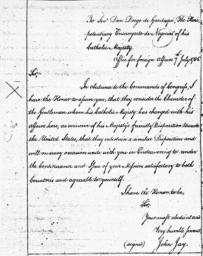 To Señr Don Diego de Gardoqui, The Plenipotentiary
Encargado de Negocios of his
Catholic Majesty
Office for foreign Affairs 7th July 1785
Sir,
In obedience to the Commands of Congress, I
have the Honor to assure you, that they consider the Character of
the Gentleman whom his Catholic Majesty has charged with his
affairs here, as evincive of his Majesty's friendly Disposition towards
the United States, that they entertain a similar Disposition and
will on every occasion unite with you in Endeavouring to render
the continuance and of your Mission satisfactory to both
Countries and agreeable to yourself.
I have the Honor to be,
Sir
Your most obedient and
Very humble Servant,
(signed) John Jay.